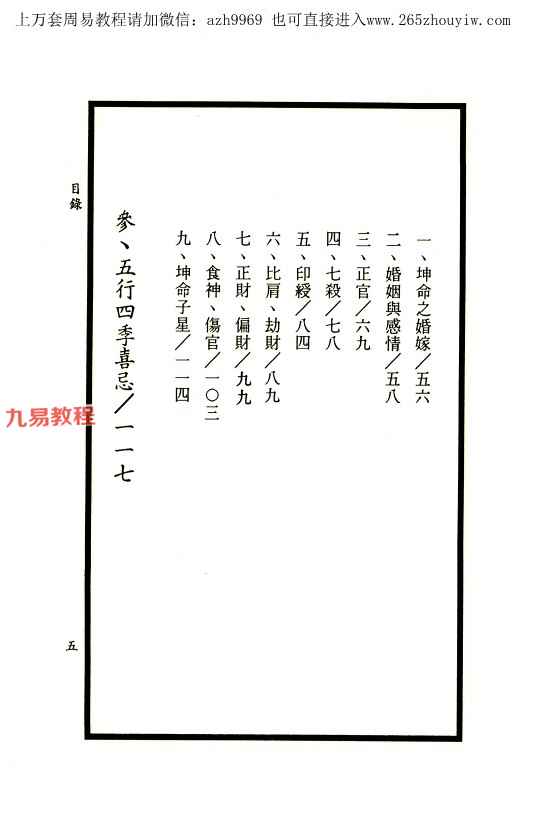 上万套周易教程请加微信：azh9969 也可直接进入www.265zhouyiw.com
一、坤命之婚嫁／五六
二、婚姻與感情／五八
三、正官／六九
四、七殺／七八
五、印綬／八四
六、比肩、劫財／八九
七、正財、偏財／九九
八、食神、傷官／一〇三
九、坤命子星／一一四
參、五行四季喜忌／一一七
目錄
五
九易教程